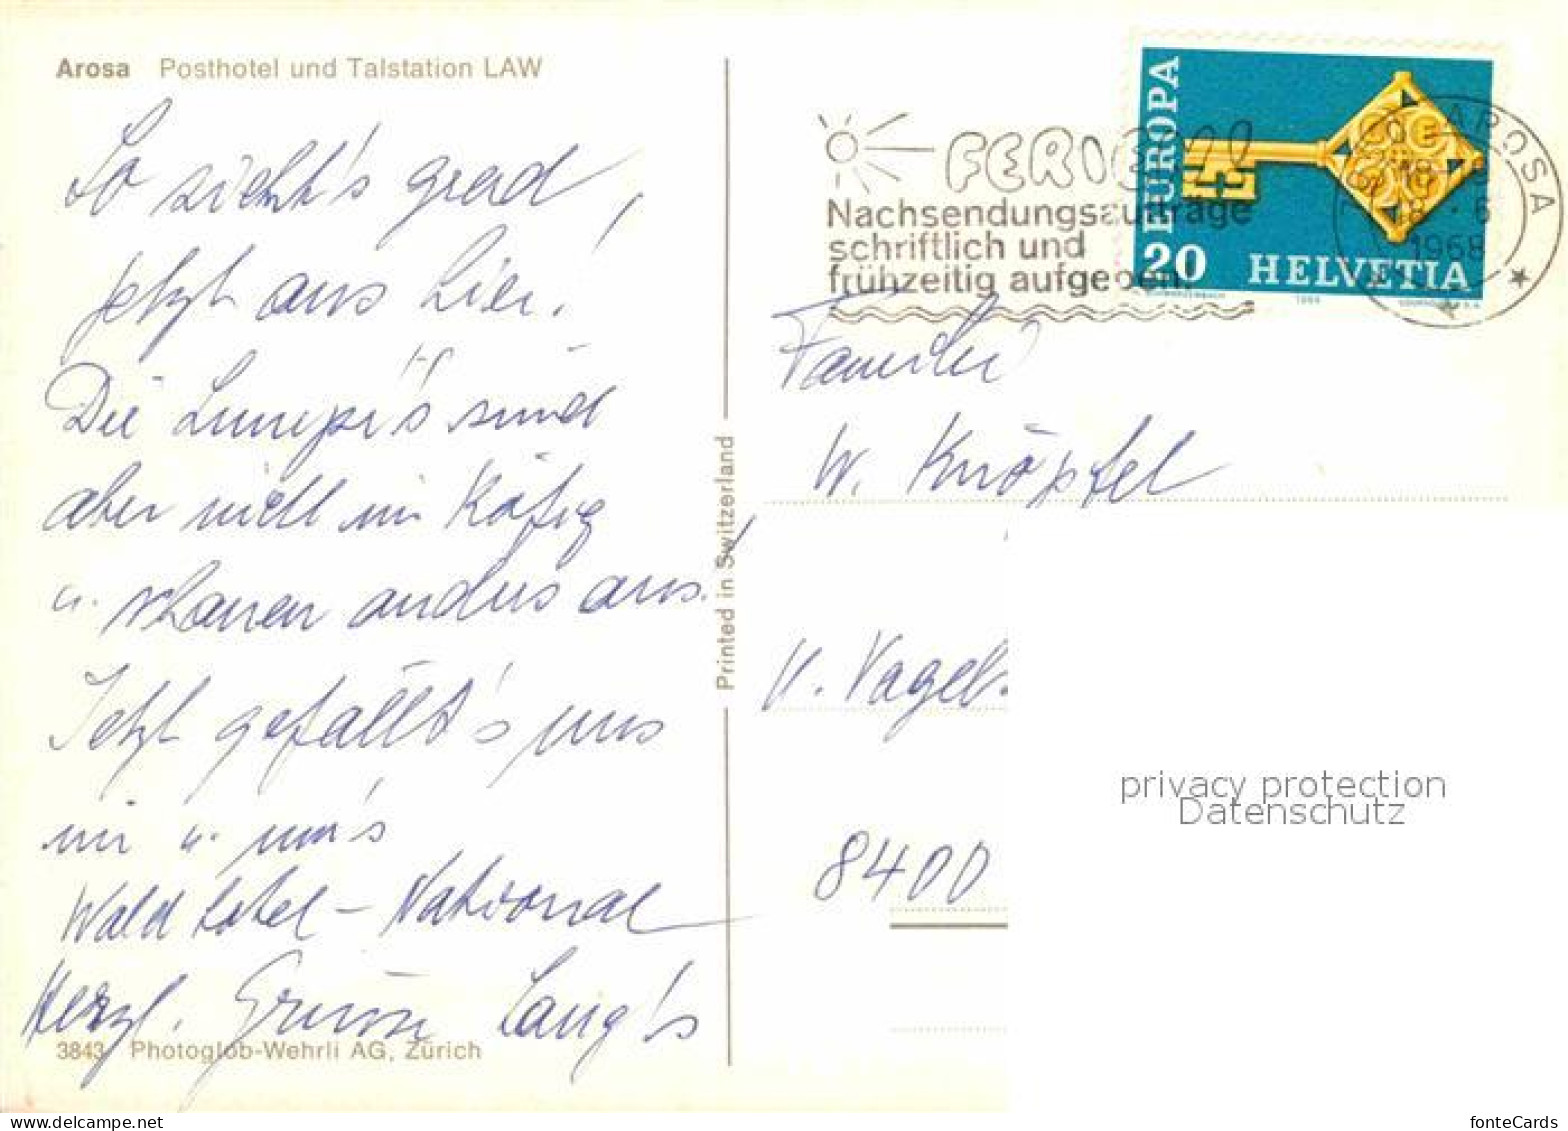 Arosa Posthotel und Talstation LAW
So sieht's grad,
jetzt aus hier!
Die Lumpi's sind
aber nicht im Käfig
u. schauen anders aus!
Jetzt gefällt's uns
im u. um's
Waldhotel-National
Herzl. Grüsse Lang's
3843 Photoglob-Wehrli AG, Zürich
Printed in Switzerland
FERIEN
Nachsendungsaufträge
schriftlich und
frühzeitig aufgeben.
EUROPA
20 HELVETIA
1968
AROSA
1968
Familie
W. Knöpfel
8400
privacy protection
Datenschutz
fonteCards